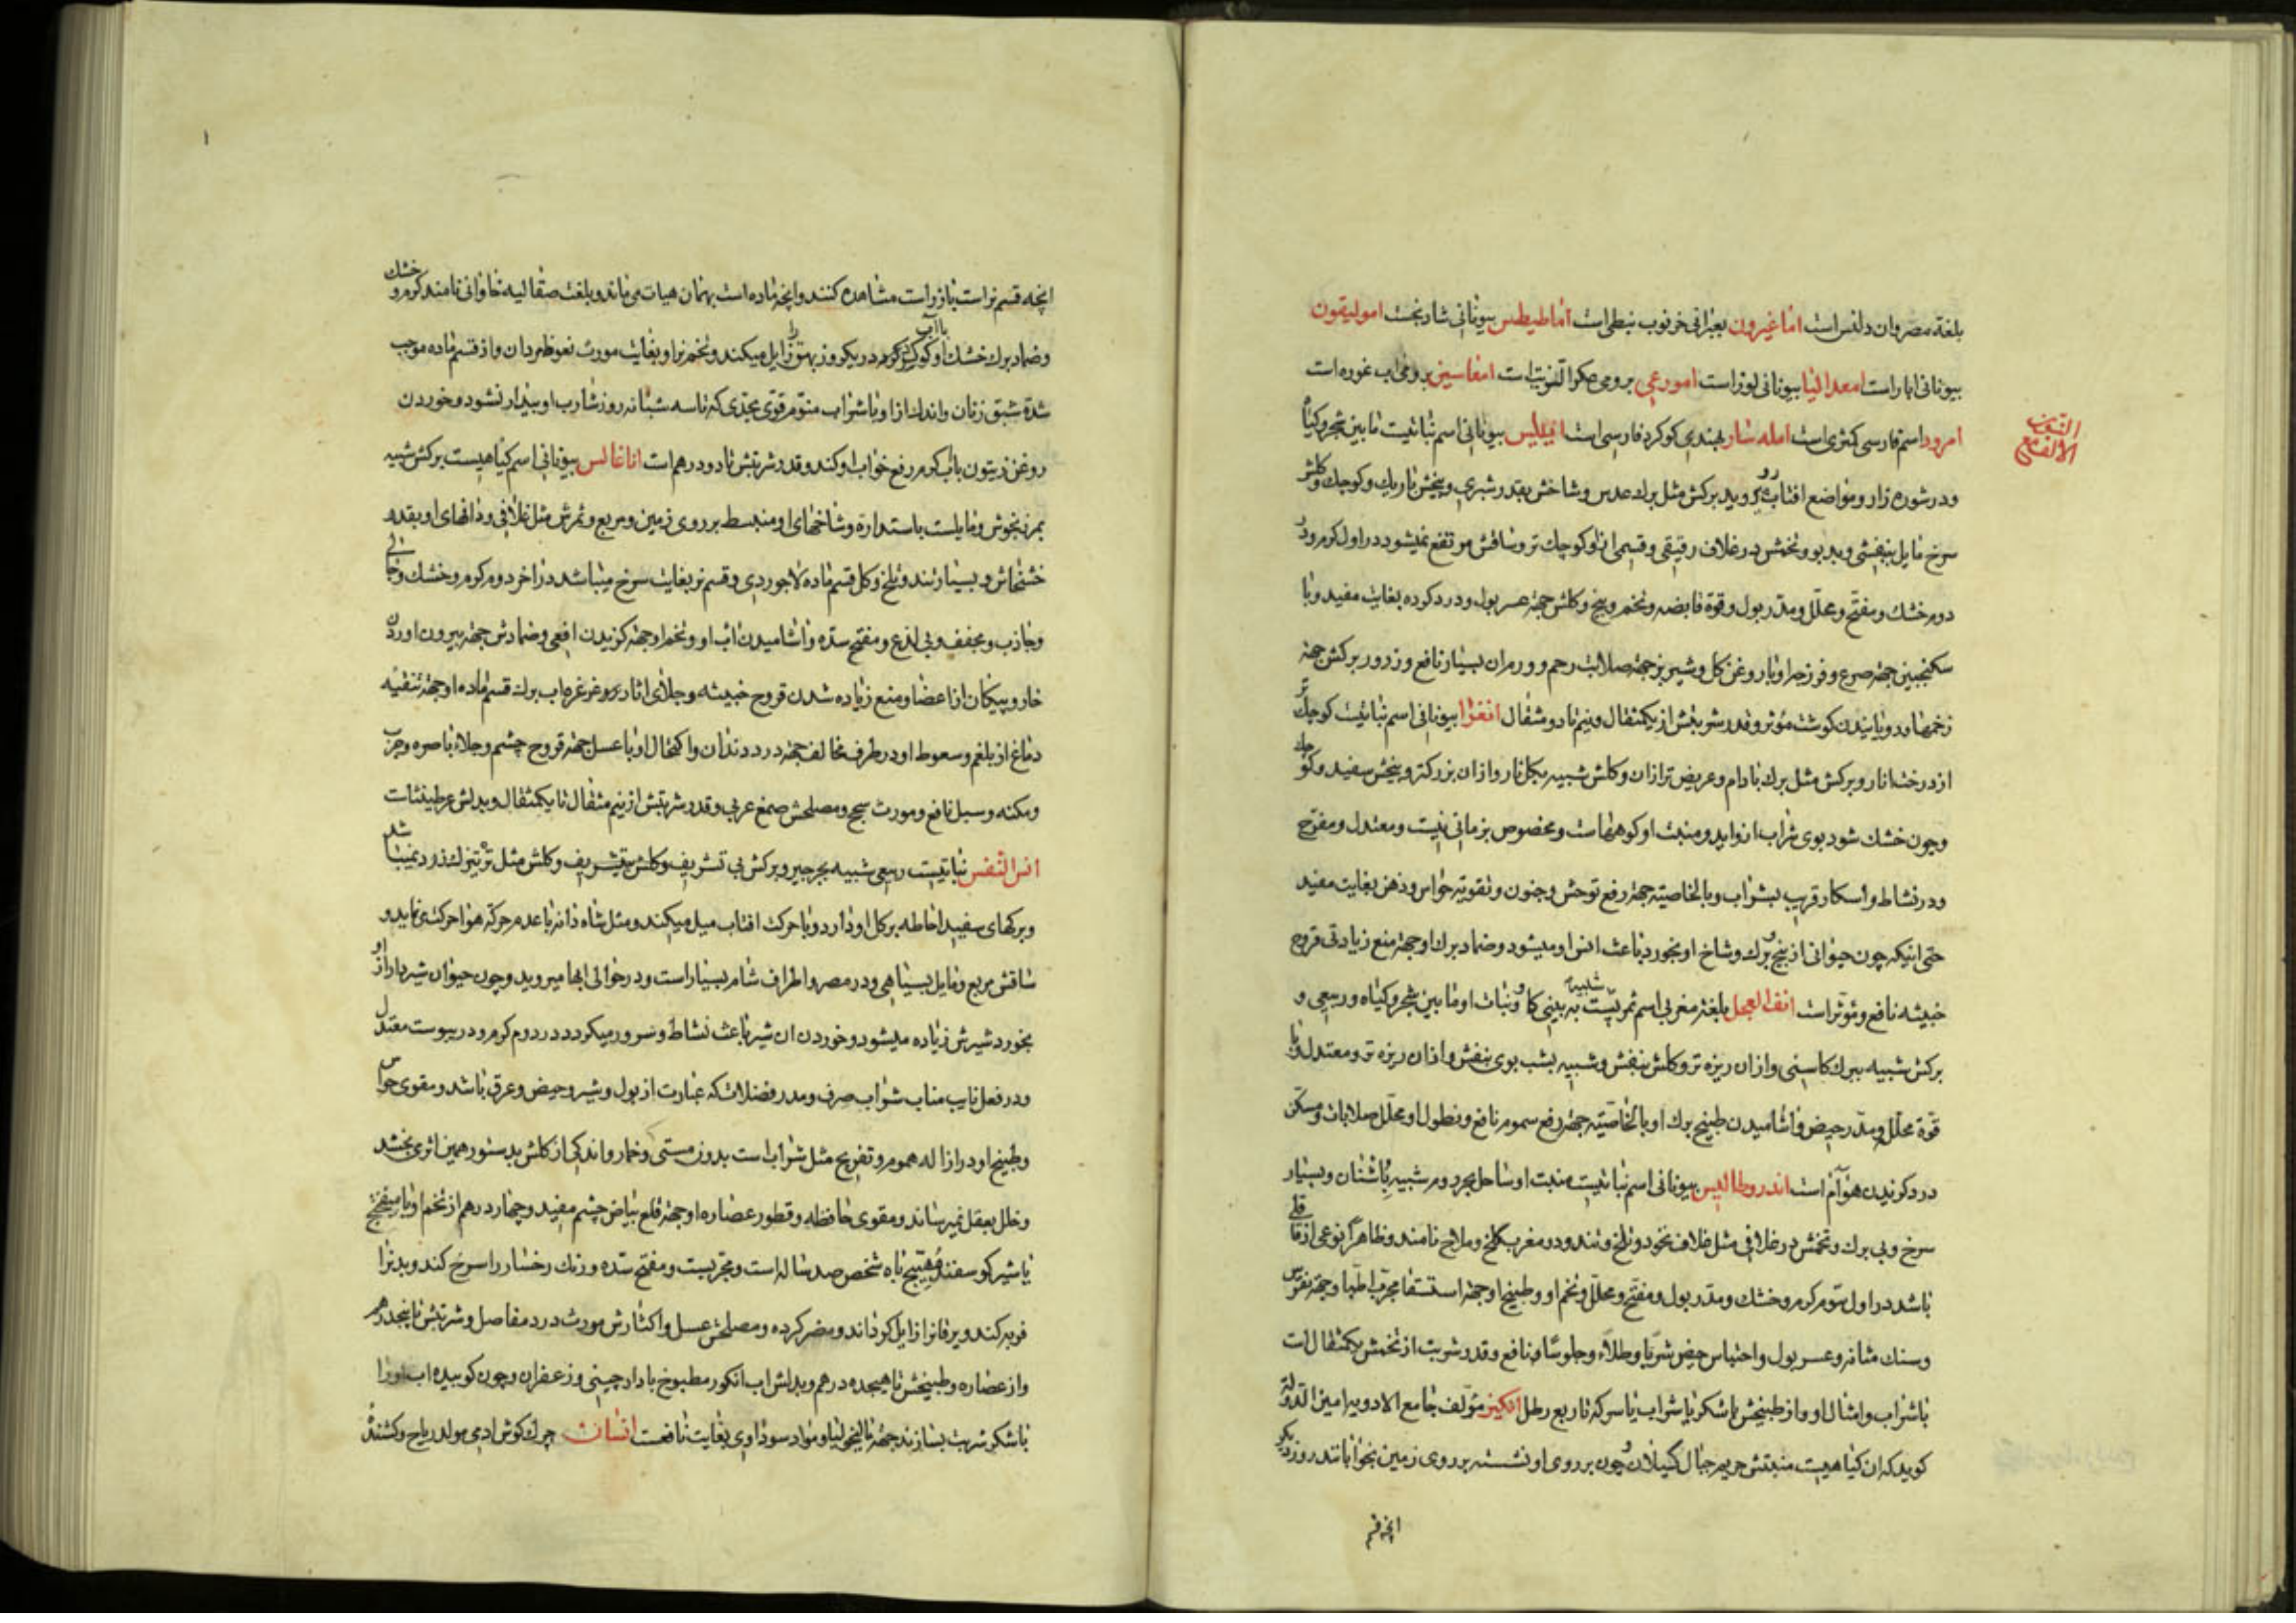 بلغة مصر وان دلفس است اناغيرون بعبرانى خرنوب نبطى است اماطيطس بيونانى شادنجست اموليقون
بيونانى ابار است امعدالنيا بيونانى لوز است امورعى برومى است امفاسين برومى اب غوره است
الالف مع النون
امرود اسم فارسى كمثرى است امله سار بهندى كوكرد فارسى است انيليس بيونانى اسم نباتيست مابين شجر و كياه
و در شوره زار و مواضع افتاب رو ميرويد بركش مثل برك عدس و شاخش بقدر شبرى و بيخش باريك و كوچك و كلش
سرخ مايل ببنفشى و بدبو و تخمش در غلاف رقيقى و قسمى ازو كوچك تر و ساقش مرتفع نميشود در اول كرم و در
دوم خشك و مفتح و محلل و مدر بول و قوة قابضه و تخم و بيخ و كلش جهة عسر بول و درد كرده بغايت مفيد و با
سكنجبين جهة صرع و فرزجه او با روغن كل و شير بز جهة صلابت رحم و ورم ان بسيار نافع و ذرور بركش جهة
زخمها و رويانيدن كوشت مؤثر و قدر شربتش از يكمثقال و نيم تا دو مثقال انغرا بيونانى اسم نباتيست كوچك تر
از درخت انار و بركش مثل برك بادام و عريض تر از ان و كلش شبيه بكلنار و از ان بزركتر و بيخش سفيد و كوچك
و چون خشك شود بوى شراب از و ايد و منبت او كوههاست و مخصوص بزمانى نيست و معتدل و مفرح
و در نشاط و اسكار قريب بشراب و بالخاصيته جهة رفع توحش و جنون و تقويته حواس و ذهن بغايت مفيد
حتى اينكه چون حيوانى از بيخ و برك و شاخ او بخورد باعث انس او ميشود و ضماد برك او جهة منع زيادتى قروح
خبيثه نافع و مؤثر است انف العجل بلغة مغربى اسم ثمريست شبيه به بينى كاو و نبات او مابين شجر و كياه و ربيعى و
بركش شبيه ببرك كاسنى و از ان ريزه تر و كلش بنفش و شبيه بشب بوى بنفش و از ان ريزه تر و معتدل و با
قوة محلل و مدر حيض و اشاميدن طبيخ برك او بالخاصيته جهة رفع سموم نافع و نطول او محلل صلابات و مسكن
درد كزيدن هوام است اندروطاليس بيونانى اسم نباتيست منبت او ساحل بحر روم شبيه باشنان و بسيار
سرخ و بى برك و تخمش در غلافى مثل غلاف نخود و تلخ و تند و در مغرب و ملاح نامند و ظاهراً نوعى از قاقلى
باشد در اول سوم كرم و خشك و مدر بول و مفتح و محلل و تخم او و طبيخ او جهة استسقا مجرب اطبا و جهة نقرس
و سنك مثانه و عسر بول و احتباس حيض شربا و طلاء و جلوسا و نافع و قدر شربت از تخمش يكمثقال است
با شراب و امثال او و از طبيخش با شكر يا شراب يا سركه تا ربع رطل انكيز مؤلف جامع الادويه امين الدوله
كويد كه ان كياهيست منبتش حريم جبال كيلان و چون بر روى او نشسته بر روى زمين بخوابانند روز ديكر
انچه قسم
انچه قسم نر است باز راست مشاهده كنند و انچه ماده است بهمان هيات مى ماند و بلغت صقاليه خاوانى نامند كرم و خشك
و ضماد برك خشك او با اب كرم در يكروز بهق را زايل ميكند و تخم نر او بغايت مورث نعوظ مردان و از قسم ماده موجب
شدة شبق زنان و اندك از او با شراب منوم قوى بحدى كه تا سه شبانه روز شارب او بيدار نشود و خوردن
روغن زيتون با اب كرم رفع خواب او كند و قدر شربتش تا دو درهم است اناغالس بيونانى اسم كياهيست بركش شبيه
بمرزنجوش و مايلست باستداره و شاخهاى او منبسط بر روى زمين و مربع و ثمرش مثل غلافى و دانهاى او بقدر
خشخاش و بسيار تند و تلخ و كل قسم ماده لاجوردى و قسم نر بغايت سرخ ميباشد در اخر دوم كرم و خشك و جالى
و جاذب و مجفف و بى لذع و مفتح سده و اشاميدن اب او و تخم او جهة كزيدن افعى و ضمادش جهة بيرون اوردن
خار و پيكان از اعضا و منع زياده شدن قروح خبيثه و جلاى اثار و غرغره اب برك قسم ماده او جهة تنقيه
دماغ از بلغم و سعوط او در طرف مخالف جهة درد دندان و اكتحال او با عسل جهة قروح چشم و جلاء باصره و جرب
و مكنه و سبل نافع و مورث سحج و مصلحش صمغ عربى و قدر شربتش از نيم مثقال تا يكمثقال و بدلش عرطنيثات
انس النفس نباتيست ربيعى شبيه بجرجير و بركش بى تشريف و كلش بتشريف و كلش مثل ترتيزك زرد نميباشد
و بركهاى سفيد احاطه بر كل او دارد و با حركت افتاب ميل ميكند و مثل شاه دانه با عدم حركة هوا حركت مى نمايد و
ساقش مربع و مايل بسياهى و در مصر و اطراف شام بسيار است و در حوالى ابها ميرويد و چون حيوان شيردار از او
بخورد شيرش زياده ميشود و خوردن ان شير باعث نشاط و سرور ميكردد در دوم كرم و در يبوست معتدل
و در فعل نايب مناب شراب صرف و مدر فضلات كه عبارت از بول و شير و حيض و عرق باشد و مقوى حواس
و طبيخ او در ازاله هموم و تفريح مثل شراب است بدون مستى و خمار و اندكى از كلش بدستور همين اثر مى بخشد
و خلل بعقل نميرساند و مقوى حافظه و قطور عصاره او جهة قلع بياض چشم مفيد و چهار درهم از تخم او با ميفختج
يا شير كوسفند مهيج باه شخص صد ساله است و مجربست و مفتح سده و رنك رخسار را سرخ كند و بدن را
فربه كند و يرقان را زايل كرداند و مضر كرده و مصلحش عسل و اكثارش مورث درد مفاصل و شربتش تا پنجدرهم
و از عصاره و طبيخش تا هيجده درهم و بدلش اب انكور مطبوخ با دارچينى و زعفران و چون كوبيده اب او را
با شكر شربت بسازند جهة ماليخوليا و مواد سوداوى بغايت نافعست انسان چرك كوش ادمى مولد رياح و كشنده